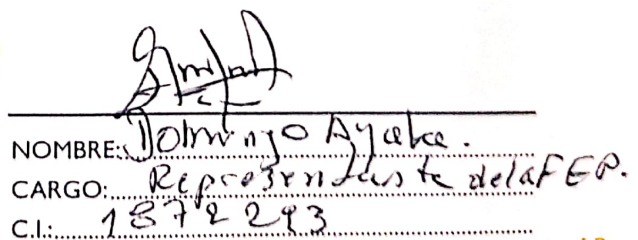 NOMBRE: Domingo Ayala.
CARGO: Representante de la FEP.
C.I.: 1872293